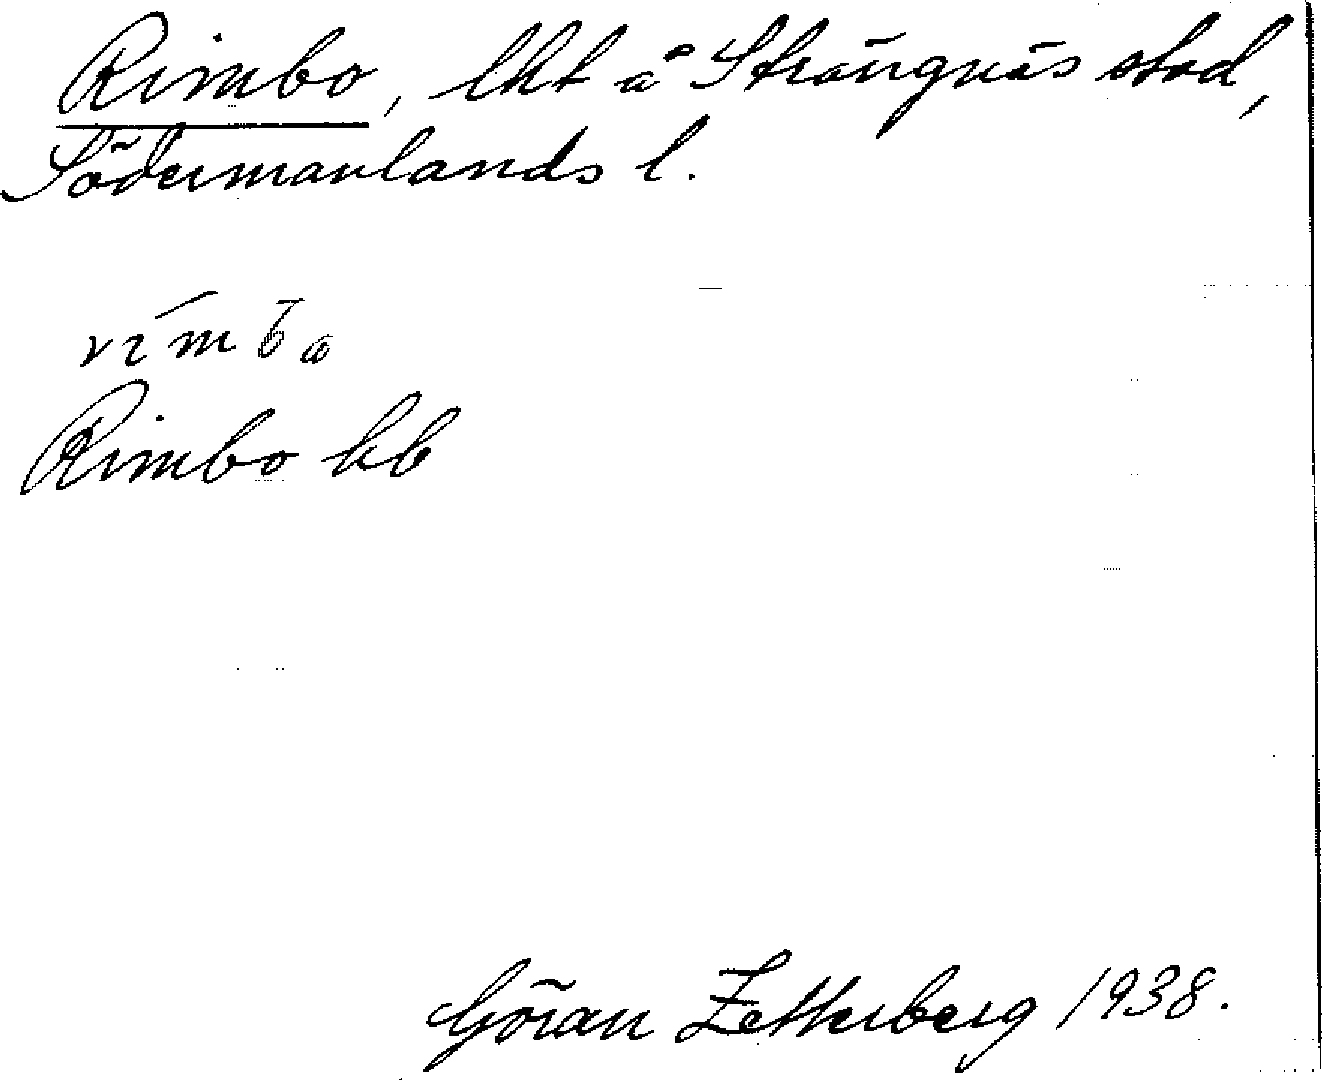 Rimbo, lht å Strängnäs stad,
Södermanlands l.
Rimbo hb
Göran Zetterberg 1938.